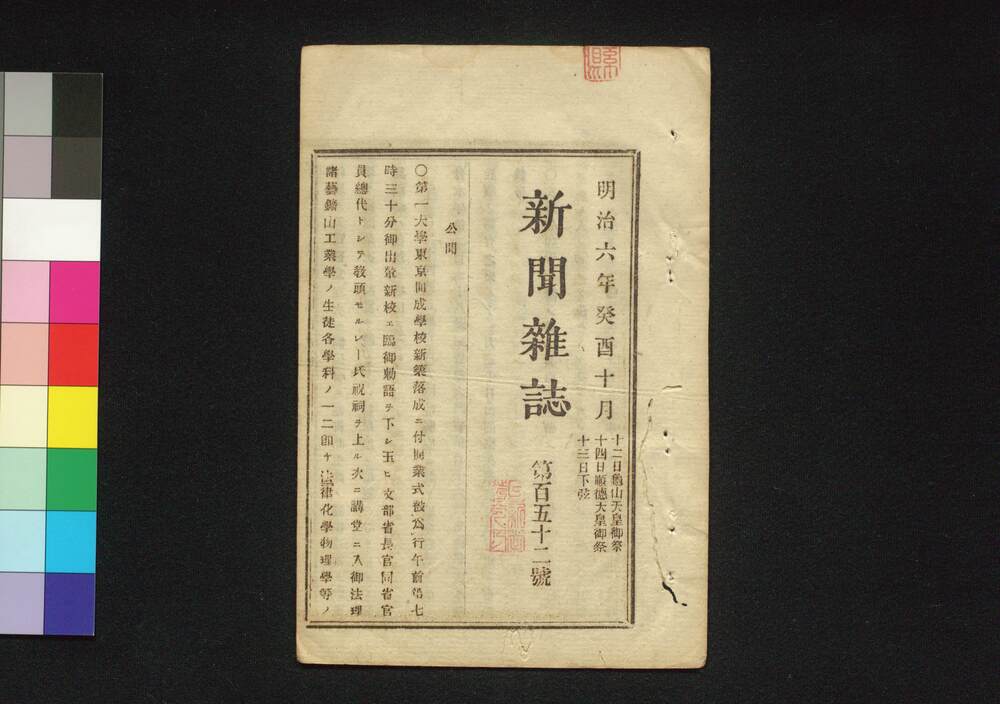 明治六年癸酉十月
十二日龜山天皇御祭
十四日順德天皇御祭
十三日下弦
新聞雜誌
第百五十二號
公聞
〇第一大學東京開成學校新築落成ニ付開業式被爲行午前第七
時三十分御出輦新校エ臨御勅語ヲ下シ玉ヒ文部省長官同省官
員總代トシテ教頭セルレー氏祝詞ヲ上ル次ニ講堂ニ入御法理
諸藝鑛山工業學ノ生徒各學科ノ一二節ヲ法律化學物理學等ノ